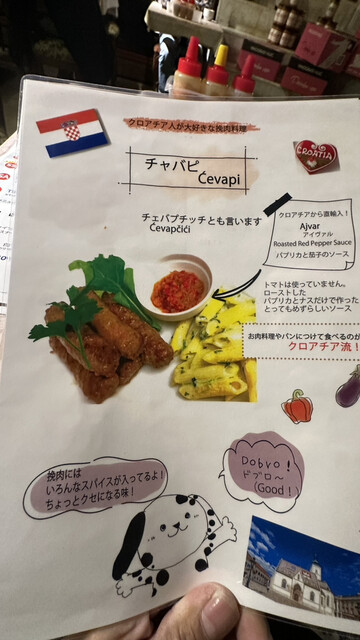 クロアチア人が大好きな挽肉料理
CROATIA
チャバピ
Ćevapi
チェバプチッチとも言います
Ćevapčići
クロアチアから直輸入！
Ajvar
アイヴァル
Roasted Red Pepper Sauce
パプリカと茄子のソース
トマトは使っていません。
ローストした
パプリカとナスだけで作った
とってもめずらしいソース
お肉料理やパンにつけて食べるのが
クロアチア流！
挽肉には
いろんなスパイスが入ってるよ！
ちょっとクセになる味！
Dobro！
ドブロ〜
（Good！